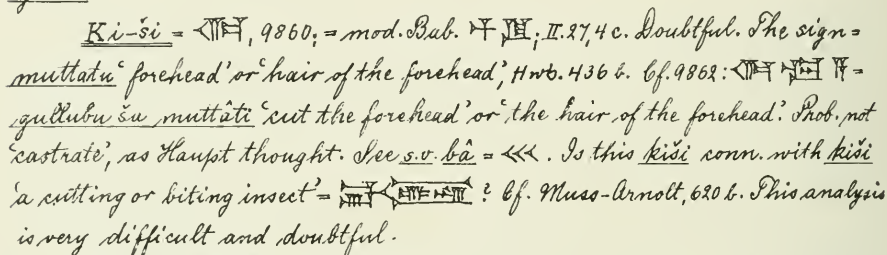 Ki-ši = 𒆠, 9860; = mod. Bab. ; II. 27, 4 c. Doubtful. The sign =
muttatu ‘forehead’ or ‘hair of the forehead’, Hwb. 436 b. Cf. 9862: =
gullubu ša muttâti ‘cut the forehead’ or ‘the hair of the forehead’. Prob. not
‘castrate’, as Haupt thought. See s.v. bâ = 𒌍. Is this kiši conn. with kiši
‘a cutting or biting insect’ = ? Cf. Muss-Arnolt, 620 b. This analysis
is very difficult and doubtful.